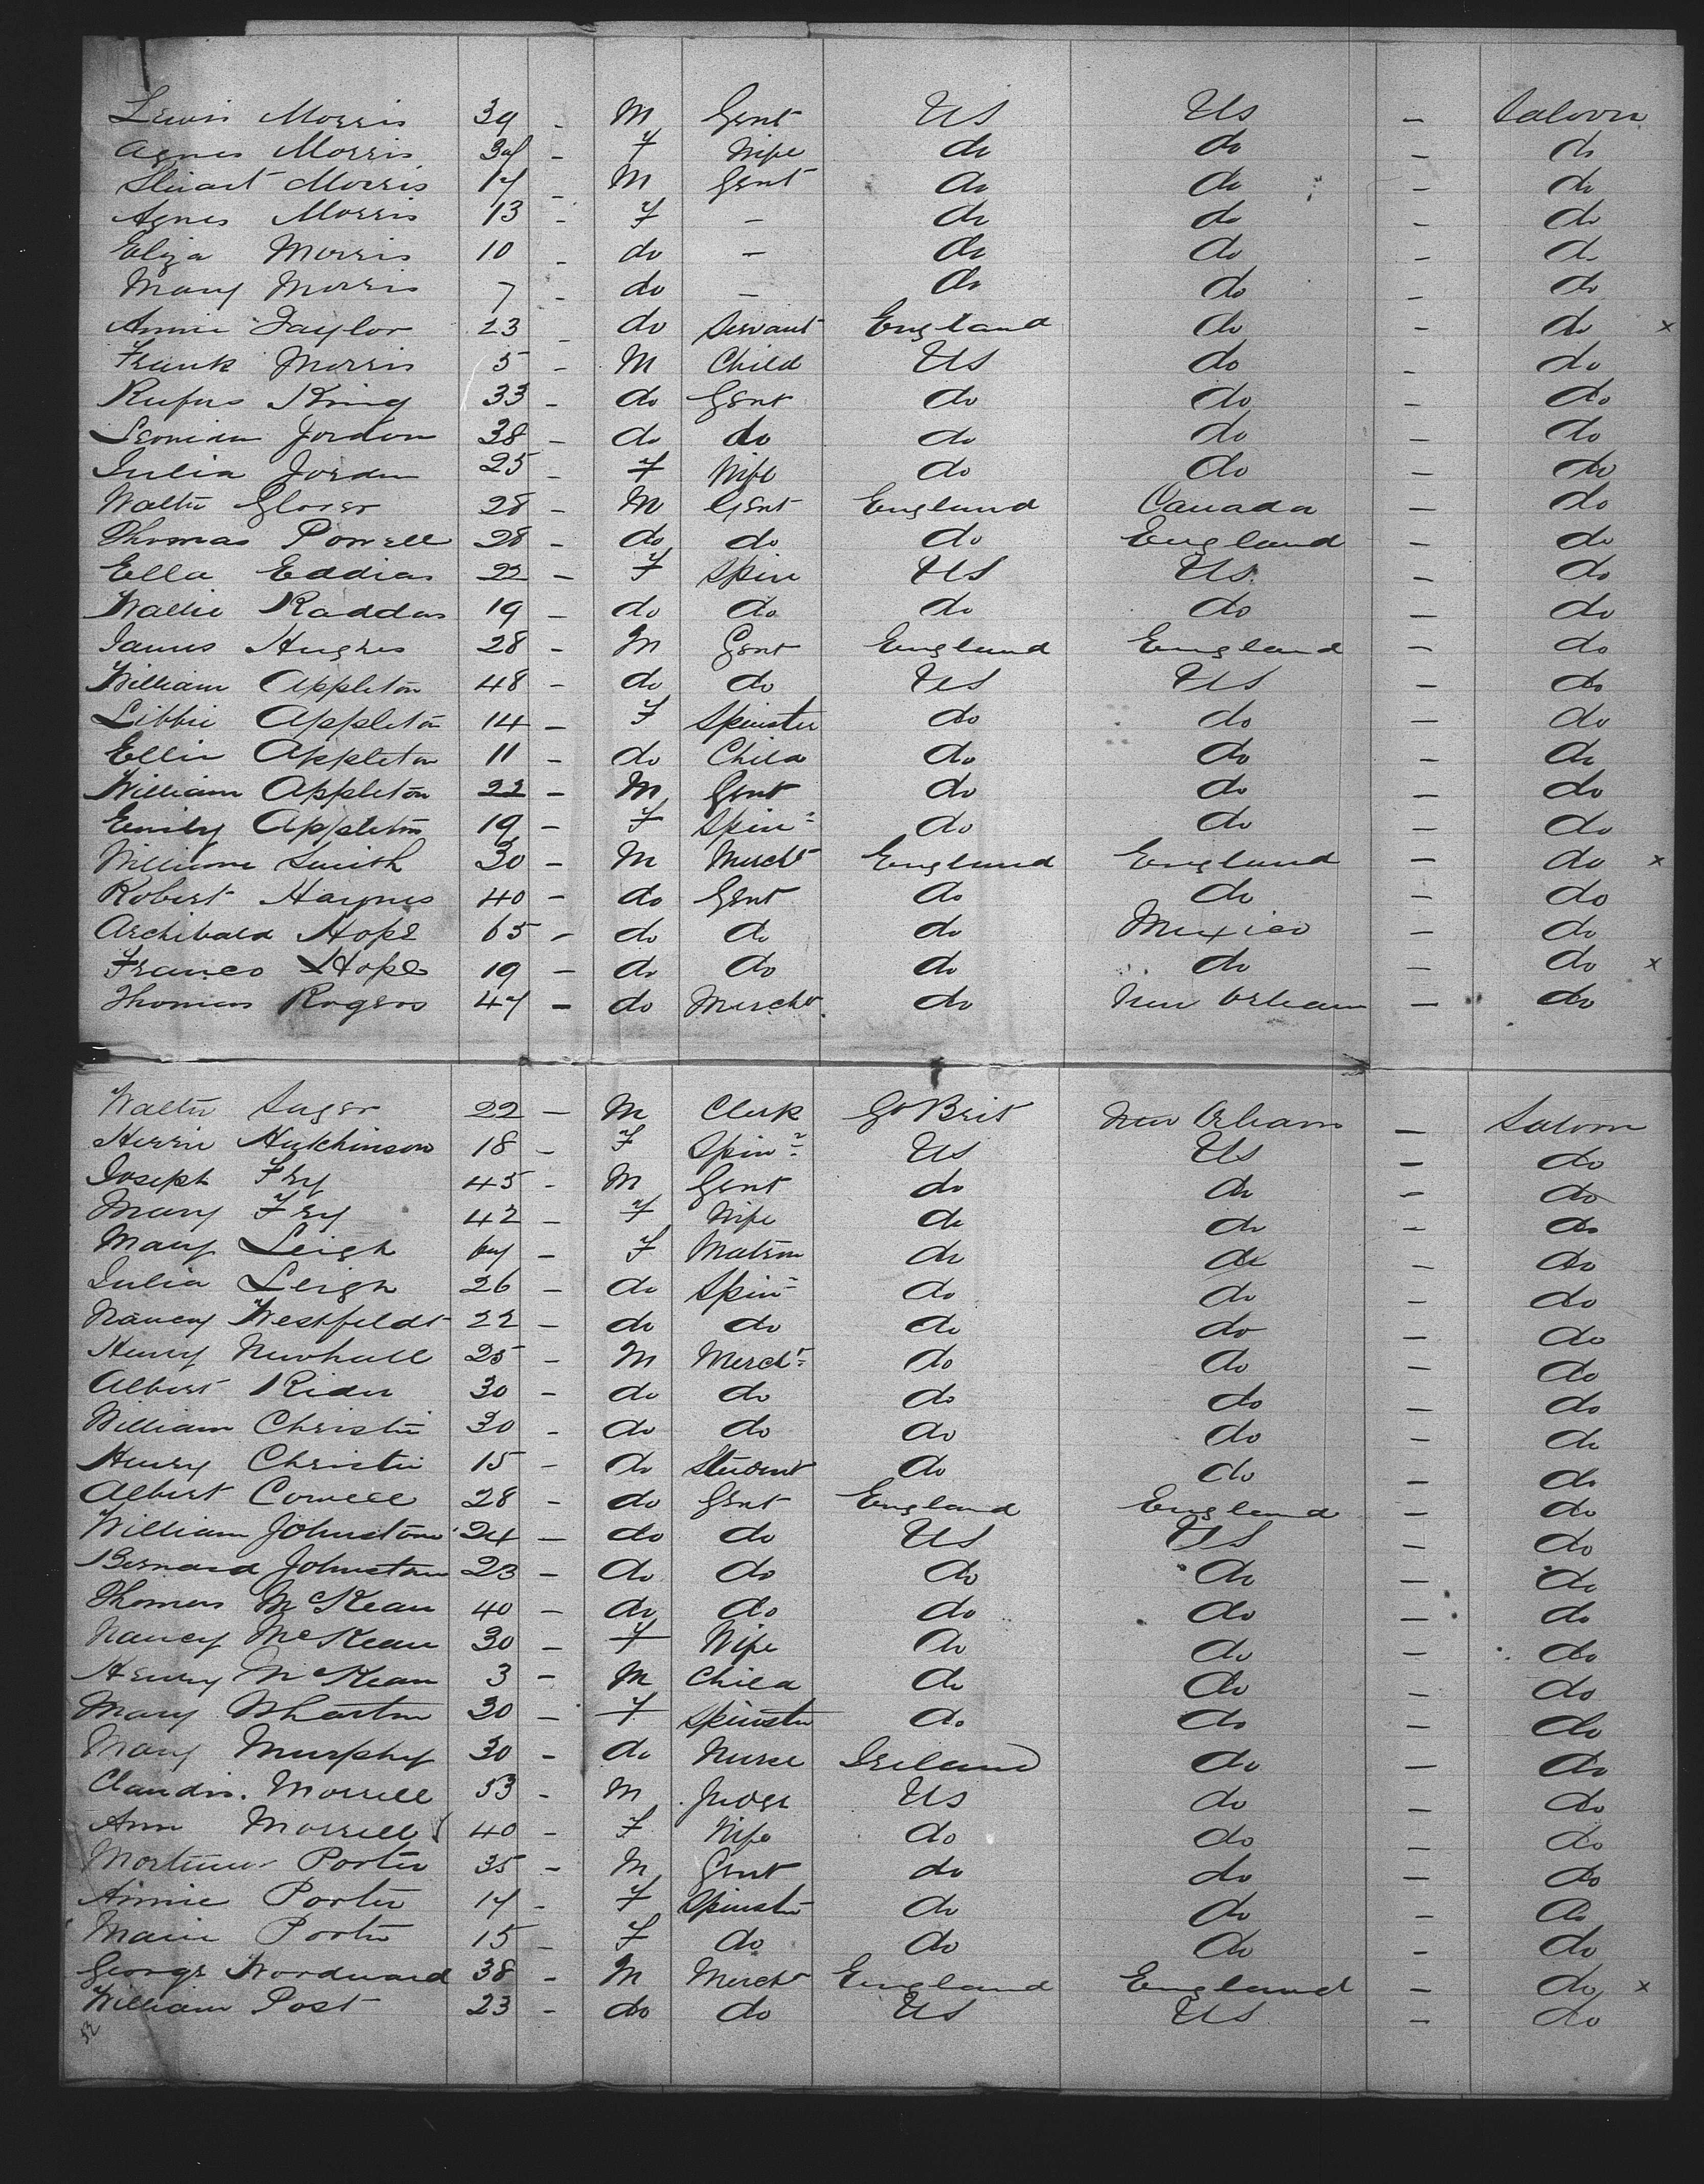 Lewis Morris 39 - M Gent US US - Saloon
Agnes Morris 34 - F Wife do do - do
Stuart Morris 17 - M Gent do do - do
Agnes Morris 13 - F - do do - do
Eliza Morris 10 - do - do do - do
Mary Morris 7 - do - do do - do
Annie Taylor 23 - do Servant England do - do x
Frank Morris 5 - M Child US do - do
Rufus King 33 - do Gent do do - do
Jordon 38 - do do do do - do
Julia Jordan 25 - F Wife do do - do
Walter Glover 28 - M Gent England Canada - do
Thomas Powell 28 - do do do England - do
Ella Eddias 22 - F Spin US US - do
Raddas 19 - do do do do - do
James Hughes 28 - M Gent England England - do
William Appleton 48 - do do US US - do
Libbie Appleton 14 - F Spinster do do - do
Ellin Appleton 11 - do Child do do - do
William Appleton 22 - M Gent do do - do
Emily Appleton 19 - F Spinr do do - do
William Smith 30 - M Mercht England England - do x
Robert Haynes 40 - do Gent do do - do
Archibald Hope 65 - do do do Mexico - do
Franco Hope 19 - do do do do - do x
Thomas Rogers 47 - do Mercht do New Orleans - do
Walter Suger 22 - M Clerk Gt Brit New Orleans - Saloon
Hutchinson 18 - F Spinr US US - do
Joseph Fry 45 - M Gent do do - do
Mary Fry 42 - F Wife do do - do
Mary Leigh 67 - F Matron do do - do
Julia Leigh 26 - do Spinr do do - do
Nancy Westfeldt 22 - do do do do - do
Henry Newhall 25 - M Mercht do do - do
Albert Rider 30 - do do do do - do
William Christie 30 - do do do do - do
Henry Christie 15 - do Student do do - do
Albert Cowell 28 - do Gent England England - do
William Johnstone 24 - do do US US - do
Bernard Johnstone 23 - do do do do - do
Thomas McKean 40 - do do do do - do
Nancy McKean 30 - F Wife do do - do
Henry McKean 3 - M Child do do - do
Mary Wharton 30 - F Spinster do do - do
Mary Murphy 30 - do Nurse Ireland do - do
Claudis. Morrell 53 - M Judge US do - do
Ann Morrell 40 - F Wife do do - do
Mortimer Porter 35 - M Gent do do - do
Annie Porter 17 - F Spinster do do - do
Maine Porter 15 - F do do do - do
George Woodward 38 - M Mercht England England - do x
William Post 23 - do do US US - do
52